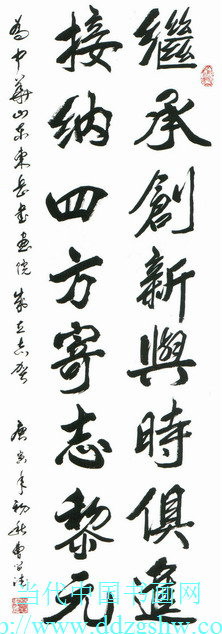 繼承創新與時俱進
接納四方寄志黎元
為中華山東東岳書畫院成立志賀
庚寅年初秋曹
当代中国书画网
www.ddzgshw.com